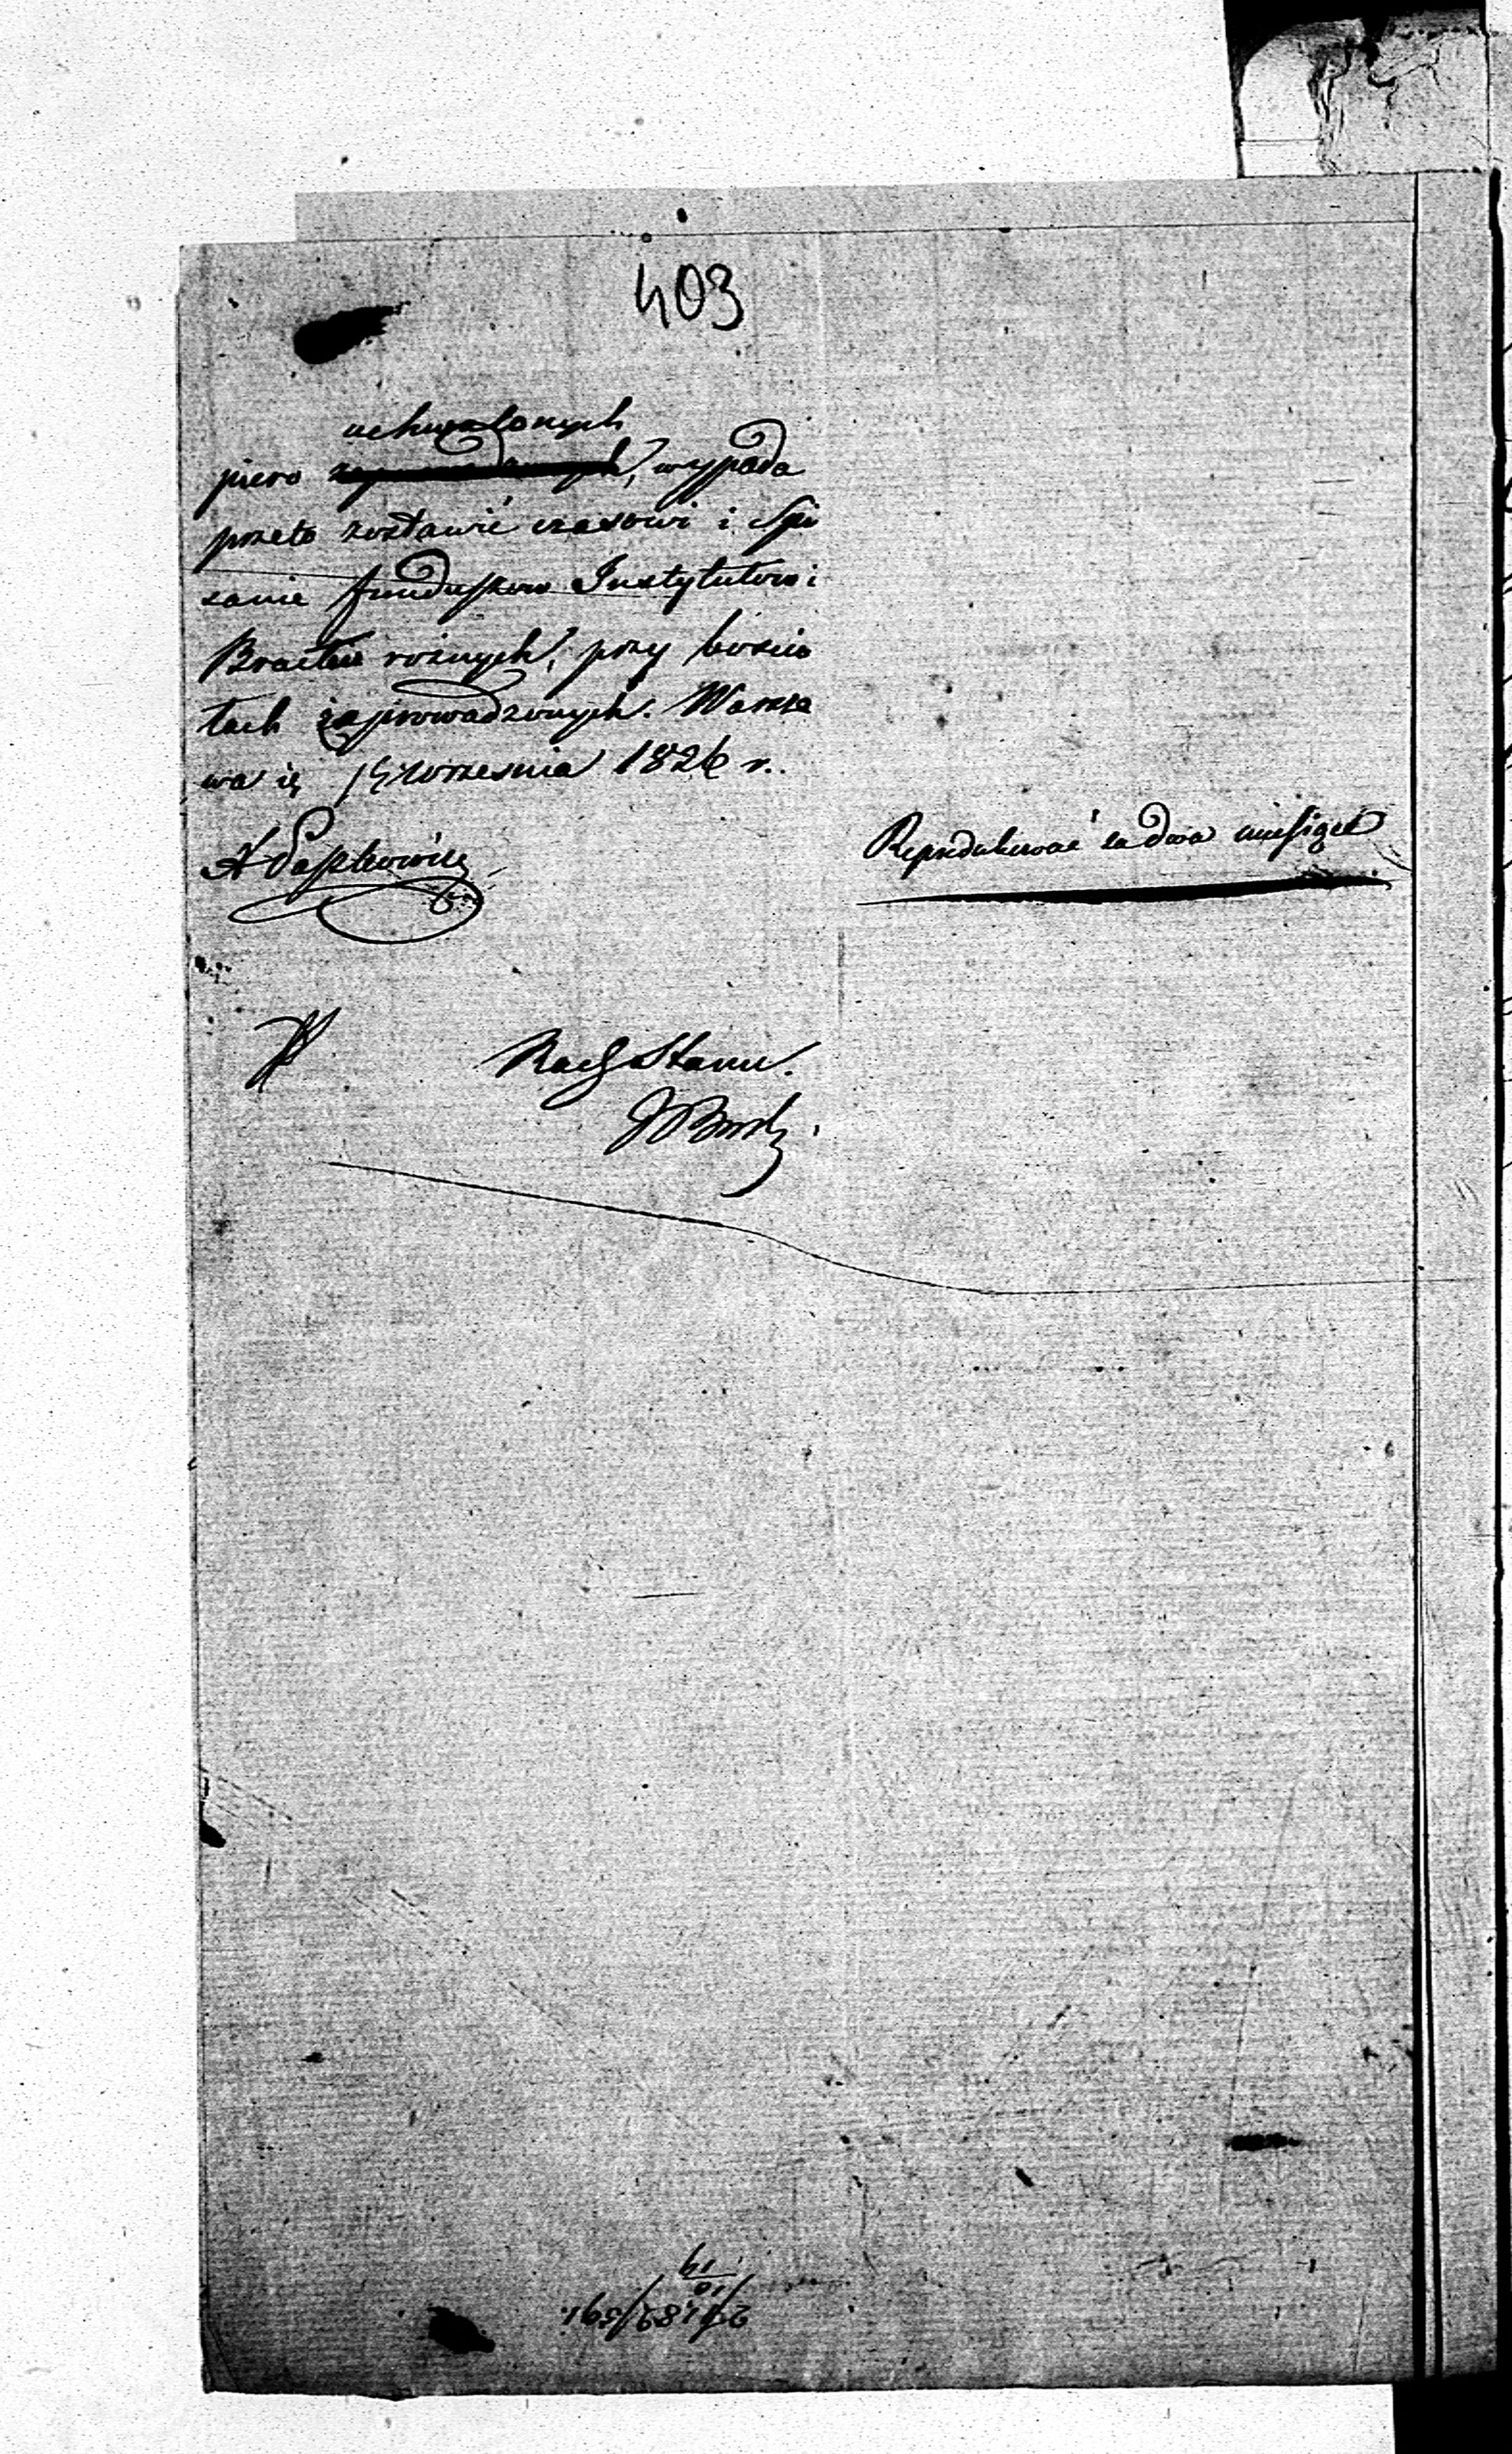 403
uchwalonych
piero wypada
przeto zostawić czasowi i Spi
sanie funduszow Instytutow i
Bractw rożnych, przy kościo
łach zaprowadzonych. Warsza
wa Września 1826 r.
Reprodukować za dwa miesiące
Radca Stanu.